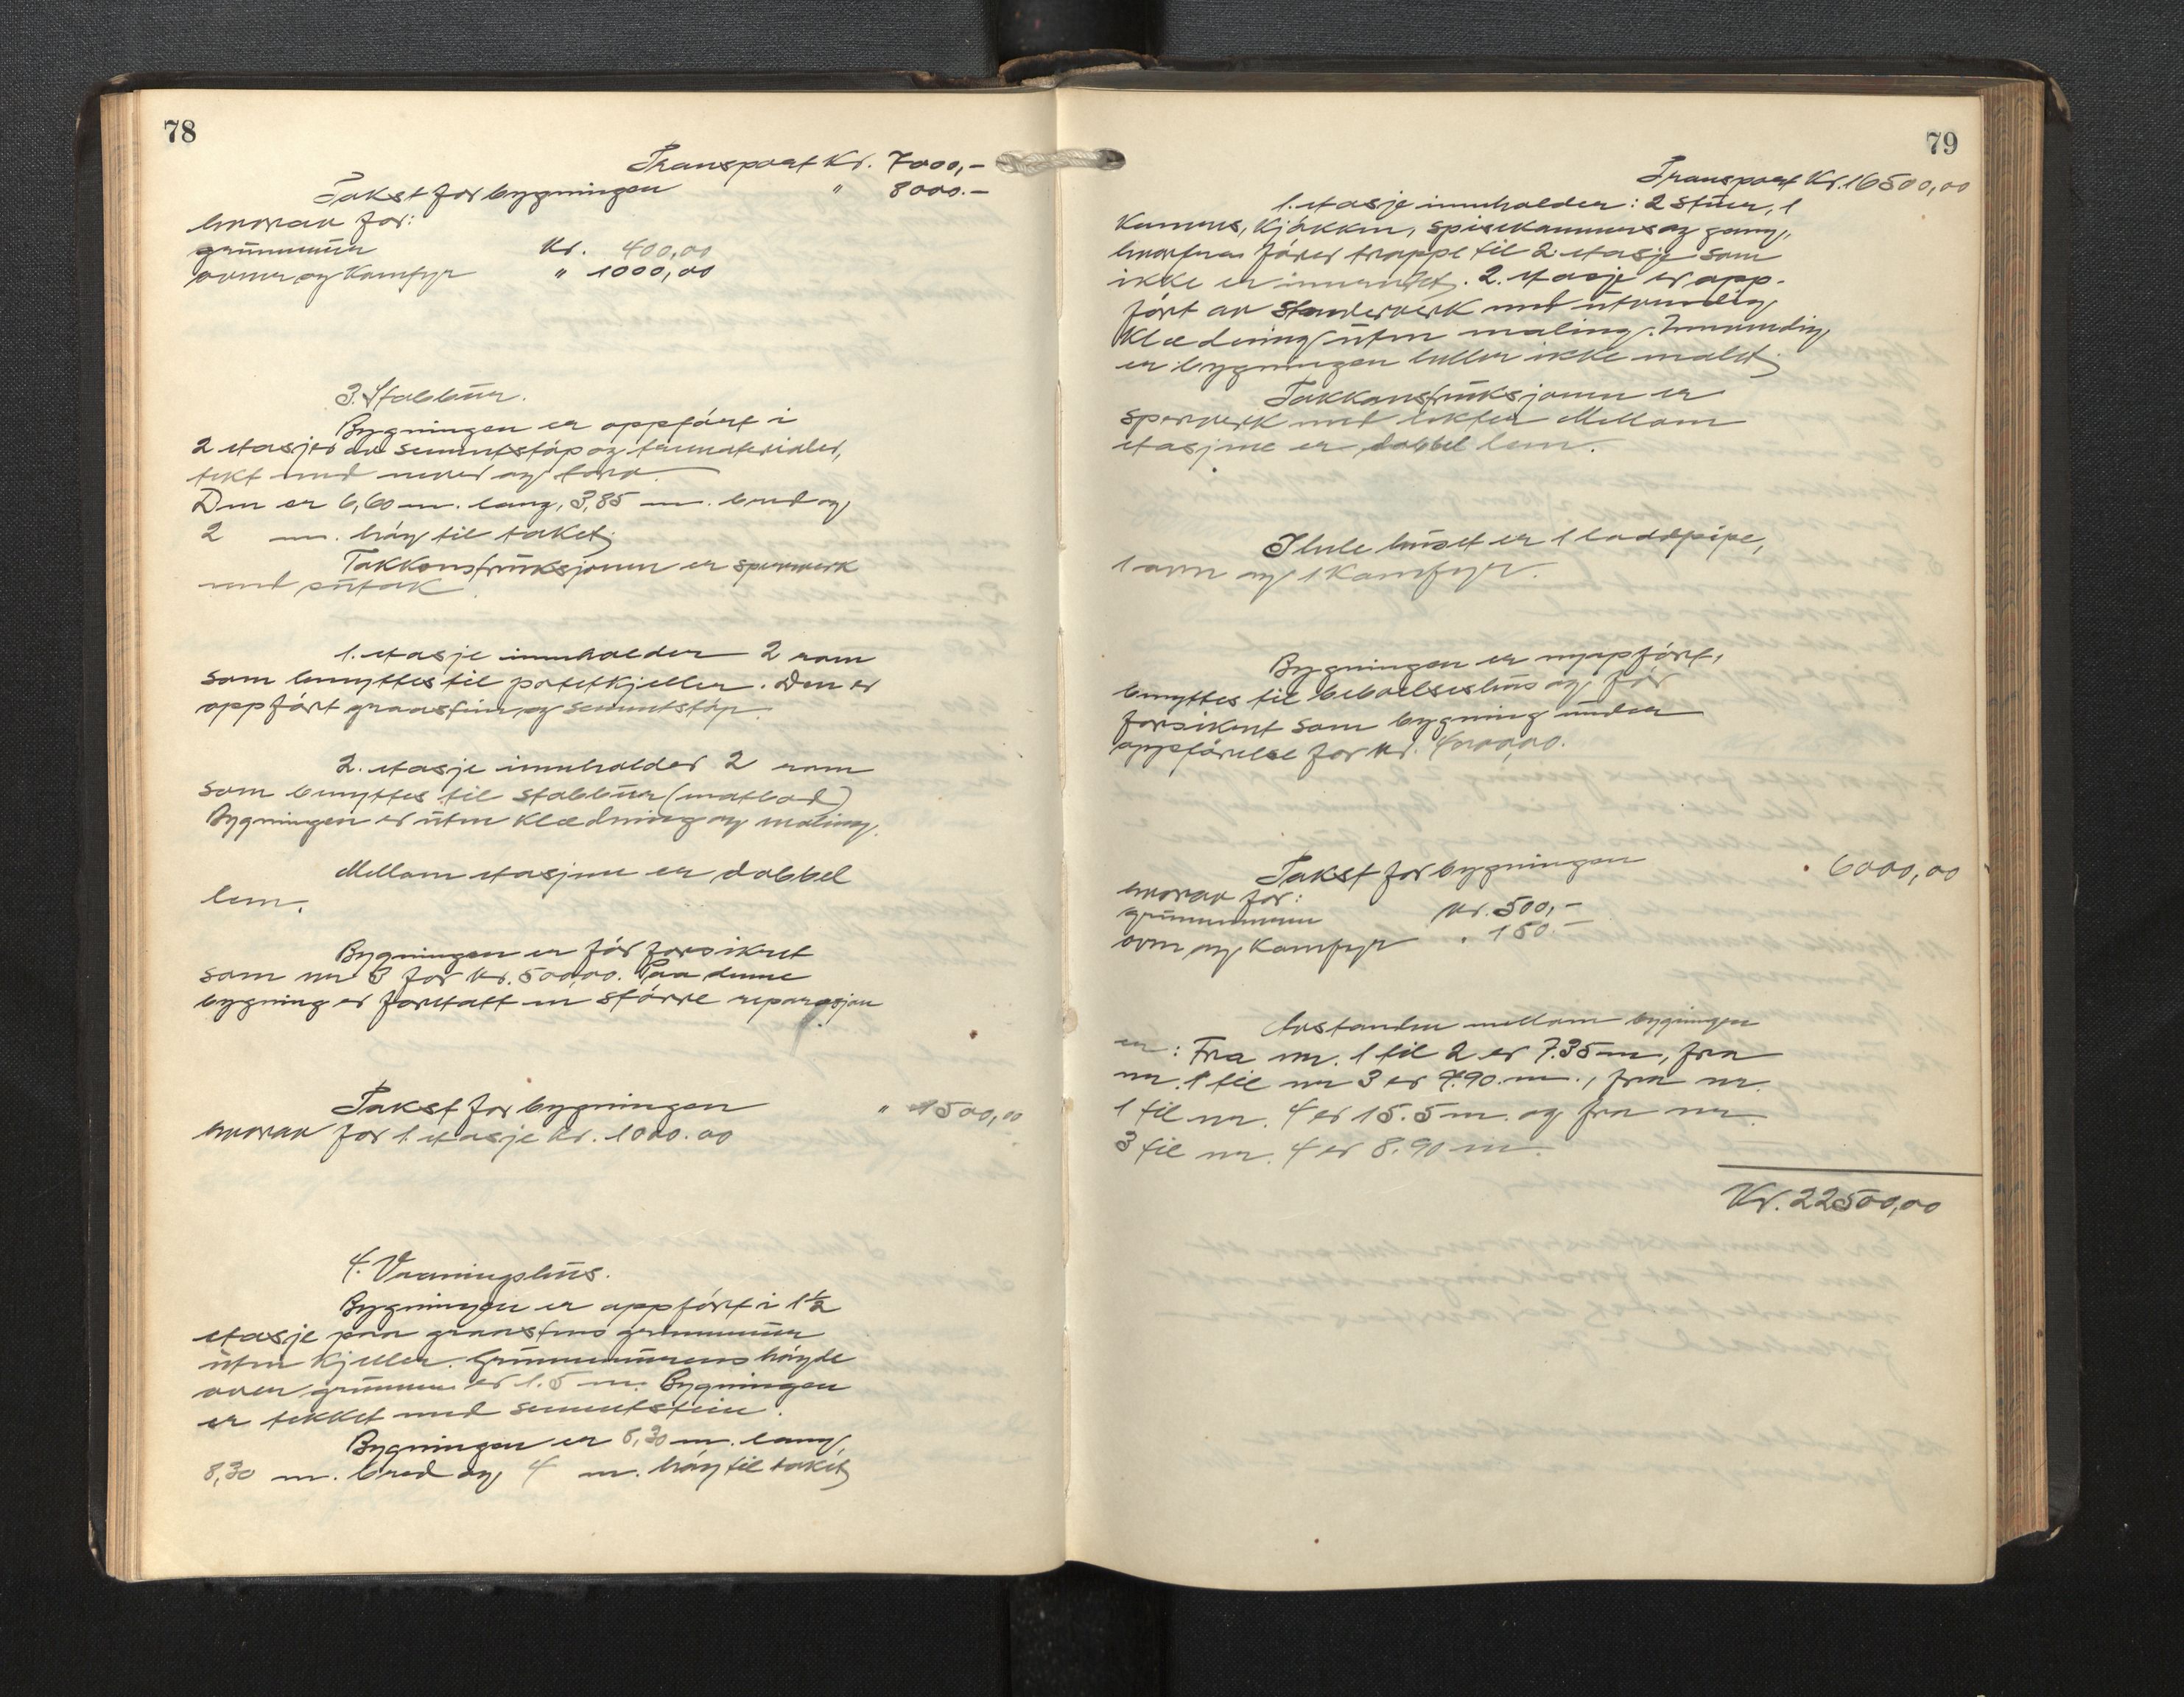 78
Transport Kr. 7000,-
Takst for bygningen " 8000.-
hvorav for:
grunnmur Kr. 400,00
ovner og Komfyr " 1000,00
3. Stabbur.
Bygningen er oppført i
2 etasjer av sementstøp og tærmaterialer,
tekt med never og torv.
Den er 6,60 m. lang, 3,85 m. bred og
2 m. høy til taket.
Takkonstruksjonen er sperrverk
med sutak
1. etasje innholder 2 rom
som benyttes til potetkjeller. Den er
oppført graastein og sementstøp.
2. etasje innholder 2 rom
som benyttes til stabbur (matbod)
Bygningen er uten Klædning og maling.
Mellom etasjene er dobbel
lem.
Bygningen er før forsikret
som nr 3 for Kr. 500,00. Paa denne
bygning er foretatt en større reparasjon
Takst for bygningen " 1500,00
hvorav for 1 etasje Kr. 1000.00
4. Vaaningshus.
Bygningen er oppført i 1½
etasje paa graastens grunnmur
uten Kjeller. Grunnmurens høyde
over grunnen er 1.5 m. Bygningen
er tekket med sementstein.
Bygningen er 8,30 m. lang,
8,30 m. bred og 4 m. høy til taket
79
Transport Kr. 16500,00
1. etasje innholder: 2 stuer, 1
Kammers, Kjøkken, spisekammers og gang,
hvorfra fører trappe til 2. etasje som
ikke er innredet. 2. etasje er opp-
ført av stenderverk med utvendig
Klædning uten maling. Innvendig
er bygningen heller ikke malt.
Takkonstruksjonen er
sperrverk med lekter Mellom
etasjene er dobbel lem.
I hele huset er 1 loddpipe,
1 ovn og 1 Komfyr.
Bygningen er nyoppført,
benyttes til beboelseshus og før
forsikret som bygning under
oppførelse for Kr. 4000,00.
Takst for bygningen " 6000,00
hvorav for:
grunnmuren Kr. 500,-
ovn og Komfyr " 150.-
Avstanden mellom bygningen
er: Fra nr. 1 til 2 er 7.35 m, fra
nr. 1 til nr 3 er 4.90 m., fra nr.
1 til nr. 4 er 15.5 m. og fra nr.
3 til nr. 4 er 8.90 m.
Kr. 22500,00